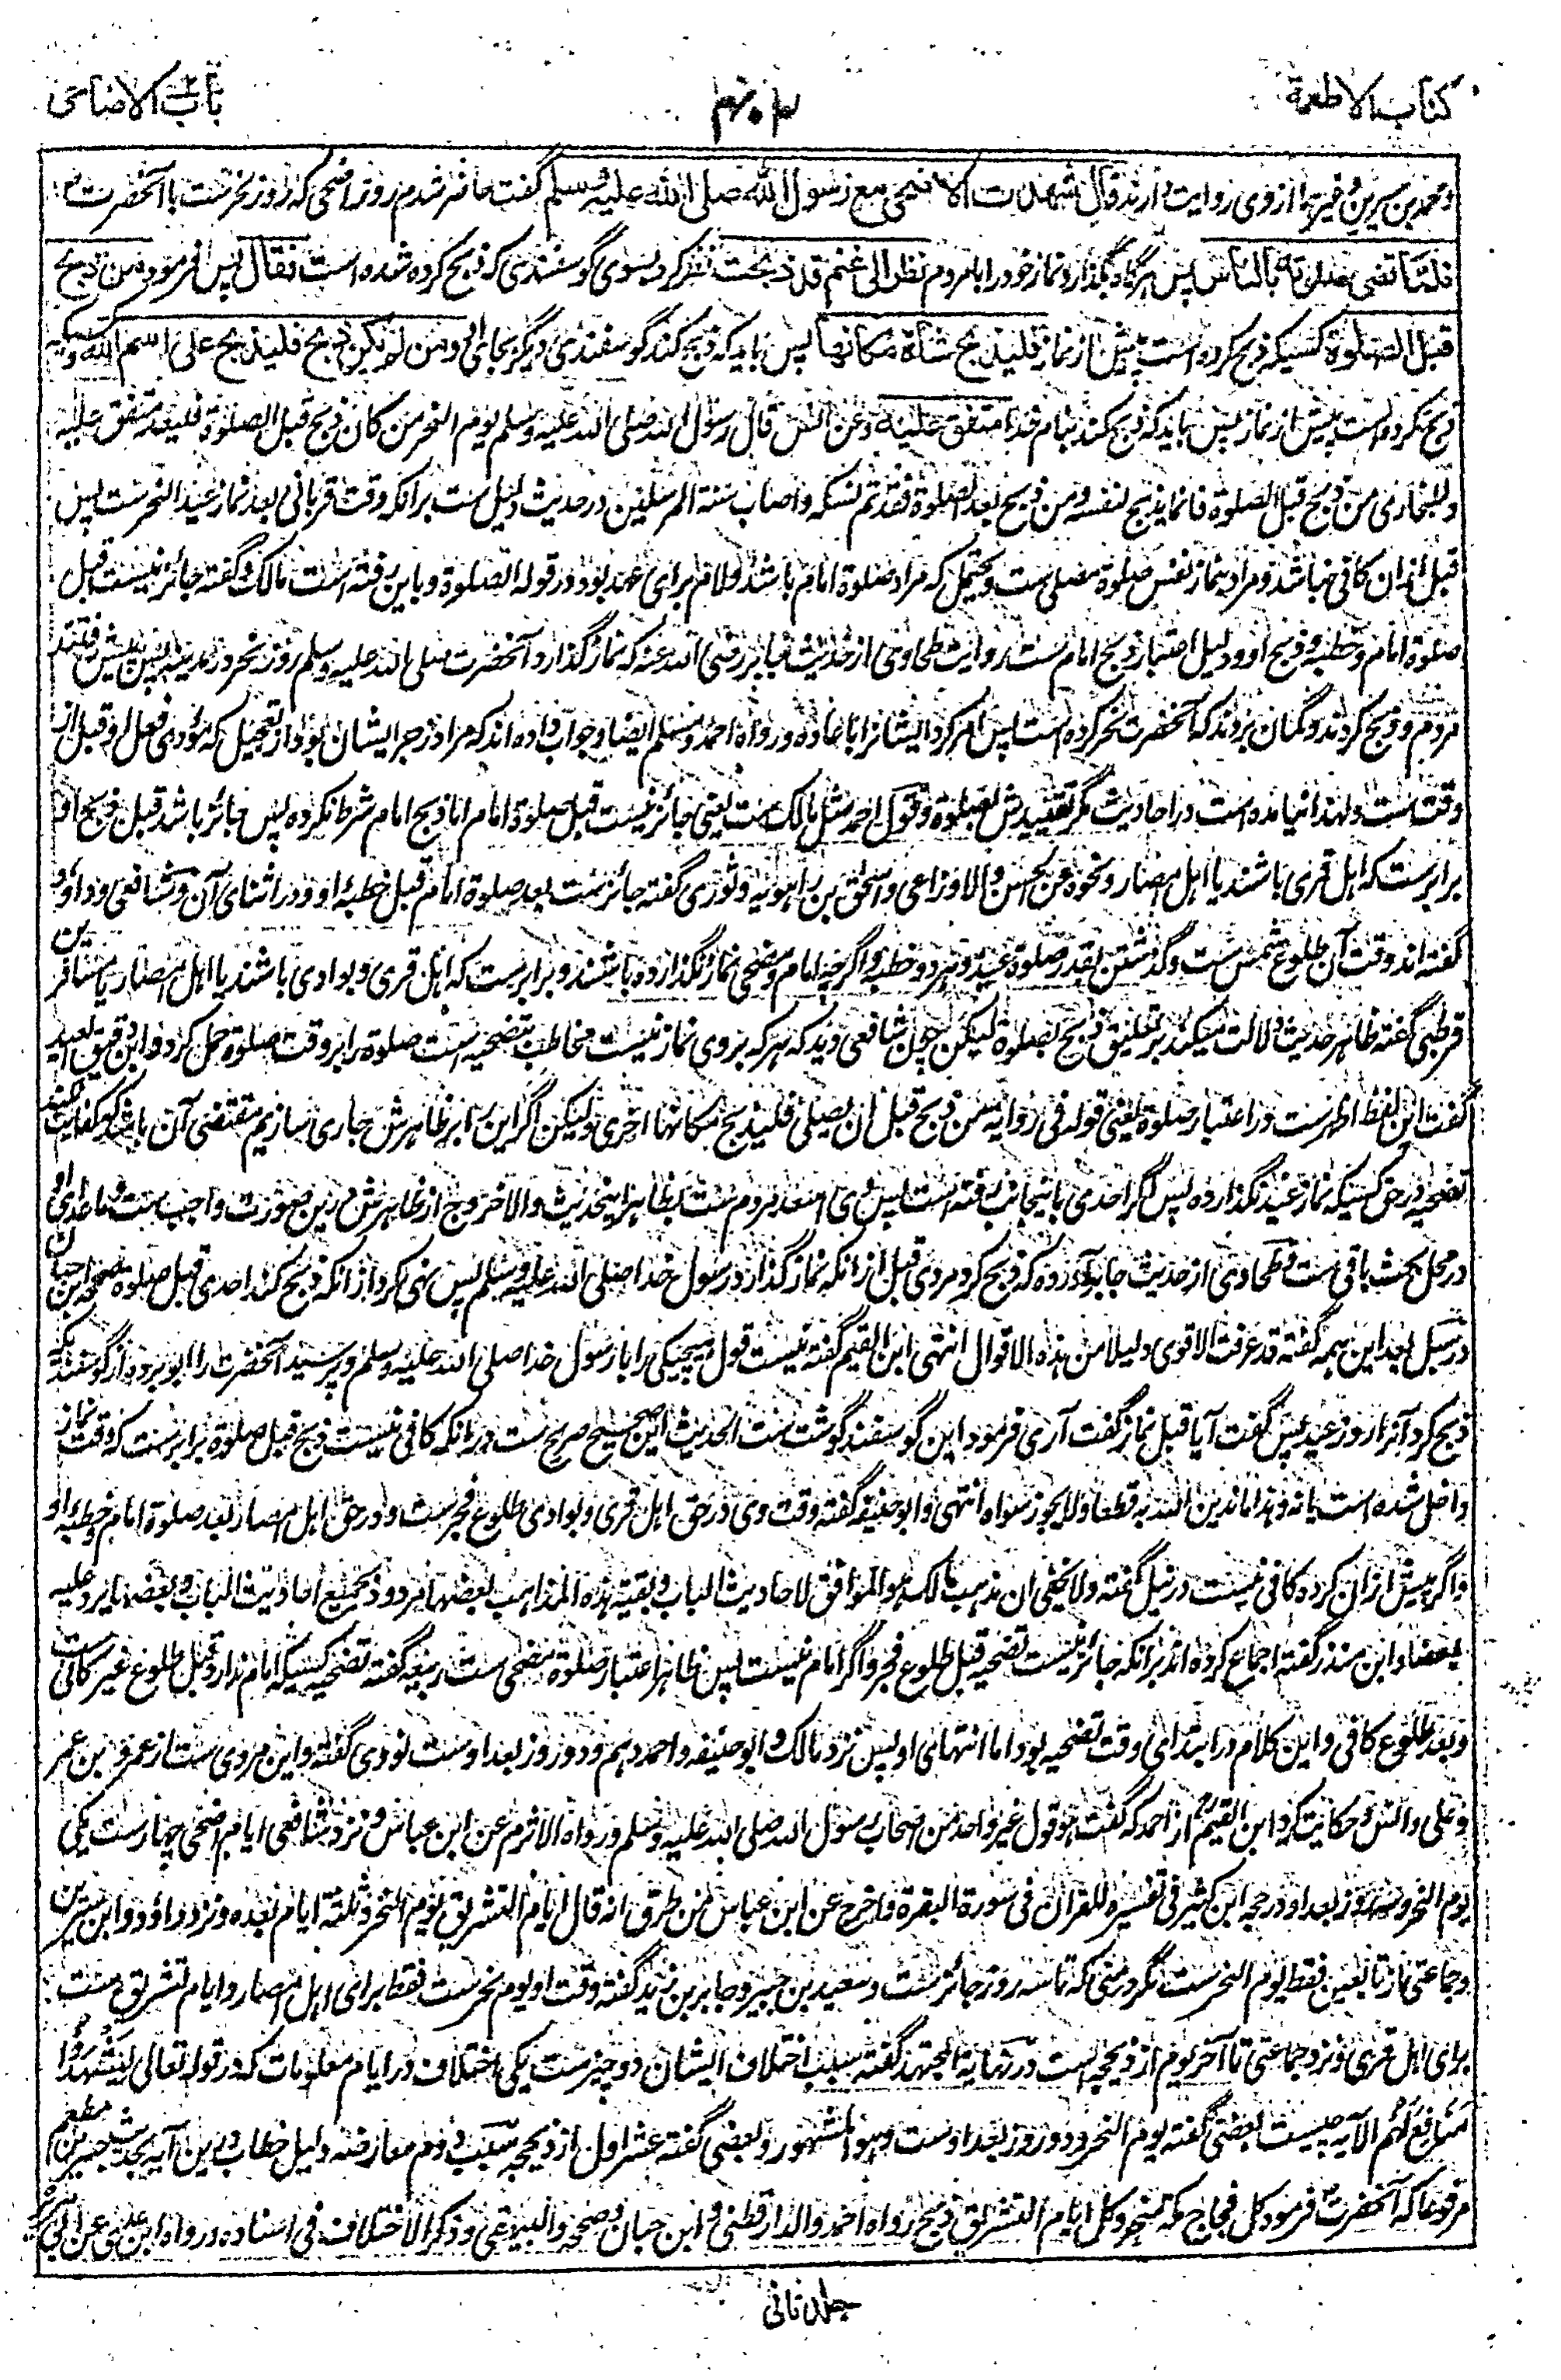 کتاب الاطعمة
۴۰۳
باب الاضاحی
ومحمد بن سیرین وغیرهما از وی روایت دارند قال شهدت الاضحی مع رسول الله صلی الله علیه وسلم گفت حاضر شدم روز اضحی که روز نحرست با آنحضرت
فلما قضی صلاته بالناس پس هرگاه بگذارد نماز خود را با مردم نظر الی غنم قد ذبحت نظر کرد بسوی گوسفندی که ذبح کرده شده است فقال پس فرمود من ذبح
قبل الصلوة کسیکه ذبح کرده است پیش از نماز فلیذبح شاة مکانها پس باید که ذبح کند گوسفندی دیگر بجای او ومن لم یکن ذبح فلیذبح علی اسم الله وکسیکه
ذبح نکرده است پیش از نماز پس باید که ذبح کند بنام خدا متفق علیه وعن انس قال رسول الله صلی الله علیه وسلم یوم النحر من کان ذبح قبل الصلوة فلیعد متفق علیه
وللبخاری من ذبح قبل الصلوة فانما یذبح لنفسه ومن ذبح بعد الصلوة فقد تم نسکه واصاب سنة المسلمین در حدیث دلیل ست برانکه وقت قربانی بعد نماز عید النحرست پس
قبل ازان کافی نباشد و مراد بنماز نفس صلوة مصلی ست ویحتمل که مراد صلوة امام باشد ولام برای عهد بود در قوله الصلوة و باین رفته است مالک وگفته جائز نیست قبل
صلوة امام وخطبه وذبح او ودلیل اعتبار ذبح امام ست روایت طحاوی از حدیث جابر رضی الله عنه که نماز گذارد آنحضرت صلی الله علیه وسلم روز نحر در مدینه پس پیش رفتند
مردم وذبح کردند وگمان بردند که آنحضرت نحر کرده است پس امر کرد ایشانرا باعاده ورواه احمد ومسلم ایضا وجواب داده اند که مراد زجر ایشان بود از تعجیل که مؤدی فعل او قبل از
وقت ست ولهذا نیامده است در احادیث مگر تقییدش بصلوة وقول احمد مثل مالک ست یعنی جائز نیست قبل صلوة امام اما ذبح امام شرط نکرده پس جائز باشد قبل ذبح او
برابرست که اهل قری باشند یا اهل امصار ونحوه عن الحسن والاوزاعی واسحق بن راهویه وثوری گفته جائزست بعد صلوة امام قبل خطبه او ودر اثنای آن وشافعی وداود
گفته اند وقت آن طلوع شمس ست وگذشتن بقدر صلوة عید وهر دو خطبه واگرچه امام ومضحی نماز نگذارده باشند وبرابرست که اهل قری وبوادی باشند یا اهل امصار یا مسافرین
قرطبی گفته ظاهر حدیث دلالت میکند بر تعلیق ذبح بصلوة لیکن چون شافعی دید که هرکه بروی نماز نیست مخاطب بتضحیه است صلوة را بر وقت صلوة حمل کرد وابن دقیق العید
گفت این لفظ اظهرست در اعتبار صلوة یعنی قوله فی روایة من ذبح قبل ان یصلی فلیذبح مکانها اخری ولیکن اگر این را بر ظاهرش جاری سازیم مقتضی آن باشد که کفایت نکند
تضحیه در حق کسیکه نماز عید نگذارده پس اگر احدی باینجانب رفته است پس وی اسعد مردم ست بظاهر این حدیث والا خروج از ظاهرش درین صورت واجب ست وما عدای او
در محل بحث باقی ست وطحاوی از حدیث جابر آورده که ذبح کرد مردی قبل ازانکه نماز گذارد رسول خدا صلی الله علیه وسلم پس نهی کرد ازانکه ذبح کند احدی قبل صلوة صححه ابن حبان
در سبل بعد این همه گفته قد عرفت الاقوی دلیلا من هذه الاقوال انتهی ابن القیم گفته نیست قول هیچیکی را با رسول خدا صلی الله علیه وسلم وپرسید آنحضرت را ابو برده از گوسفندیکه
ذبح کرد آنرا روز عید پس گفت آیا قبل نماز گفت آری فرمود این گوسفند گوشت ست الحدیث این صحیح صریح ست درانکه کافی نیست ذبح قبل صلوة برابرست که وقت نماز
داخل شده است یا نه وهذا ما ندین الله به قطعا ولا یجوز سواه انتهی وابو حنیفه گفته وقت وی در حق اهل قری وبوادی طلوع فجرست ودر حق اهل امصار بعد صلوة امام وخطبه او
واگر پیش ازان کرده کافی نیست در نیل گفته ولا یخفی ان مذهب مالک هو الموافق لاحادیث الباب وبقیة هذه المذاهب بعضها مردود بجمیع احادیث الباب وبعضها یرد علیه
بعضها وابن منذر گفته اجماع کرده اند برانکه جائز نیست تضحیه قبل طلوع فجر واگر امام نیست پس ظاهر اعتبار صلوة مضحی ست ربیعه گفته تضحیه کسیکه امام ندارد قبل طلوع غیر کافی ست
وبعد طلوع کافی واین کلام در ابتدای وقت تضحیه بود اما انتهای او پس نزد مالک وابو حنیفه واحمد دهم ودو روز بعد اوست نووی گفته واین مروی ست از عمر وابن عمر
وعلی وانس وحکایت کرد ابن القیم از احمد که گفت هو قول غیر واحد من اصحاب رسول الله صلی الله علیه وسلم ورواه الاثرم عن ابن عباس ونزد شافعی ایام اضحی چهارست یکی
یوم النحر وسه روز بعد او ورجحه ابن کثیر فی تفسیره للقران فی سورة البقرة واخرج عن ابن عباس من طرق انه قال ایام التشریق یوم النحر وثلثة ایام بعده ونزد داود وابن سیرین
وجماعتی از تابعین فقط یوم النحرست مگر در منی که تا سه روز جائزست وسعید بن جبیر وجابر بن زید گفته وقت او یوم نحرست فقط برای اهل امصار وایام تشریق ست
برای اهل قری ونزد جماعتی تا آخر یوم از ذیحجه است در نهایة المجتهد گفته سبب اختلاف ایشان دو چیزست یکی اختلاف در ایام معلومات که در قوله تعالی لیشهدوا
منافع لهم الآیه چیست بعضی گفته یوم النحر ودو روز بعد اوست وهو المشهور وبعضی گفته عشر اول از ذیحجه سبب دوم معارضه دلیل خطاب درین آیه بحدیث جبیر بن مطعم
مرفوعا که آنحضرت فرمود کل فجاج مکة منحر وکل ایام التشریق ذبح رواه احمد والدارقطنی وابن حبان وصححه والبیهقی وذکر الاختلاف فی اسناده ورواه ابن عدی عن ابی
جلد ثانی